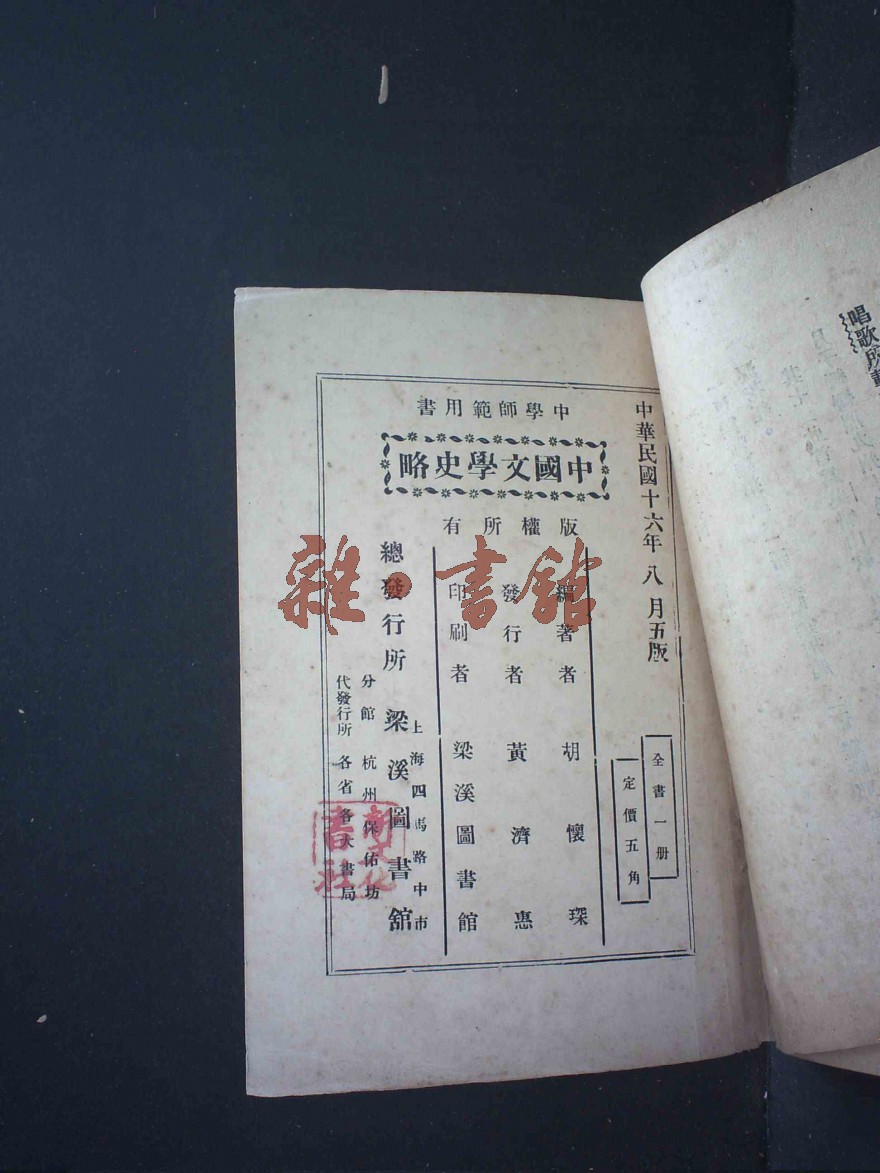 中華民國十六年八月五版
全書一册
定價五角
中學師範用書
中國文學史略
版權所有
編著者 胡懷琛
發行者 黃濟惠
印刷者 梁溪圖書館
總發行所 梁溪圖書館
上海四馬路中市
分館 杭州保佑坊
代發行所 各省各大書局
雜·書館
唱歌所載